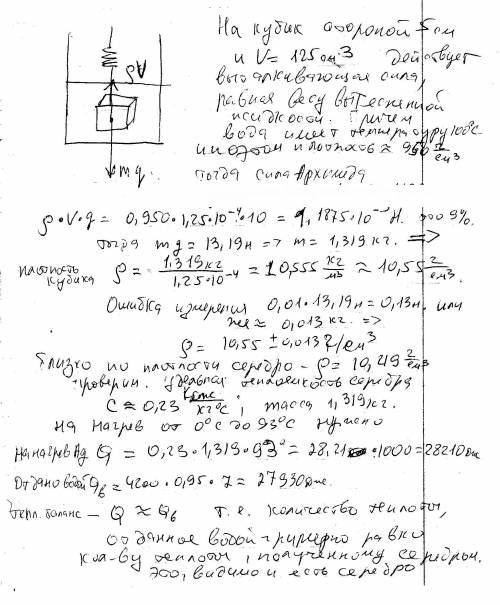 ρVg
mg
На кубик стороной 5 см
и V = 125 см³ действует
выталкивающая сила,
равная весу вытесненной
жидкости. Причем
вода имеет температуру 100°C
и плотность ≈ 950
тогда сила Архимеда
ρ·V·g = 0,950·1,25·10⁻⁴·10 = 1,1875·10⁻³ Н.
тогда mg = 13,19н => m = 1,319 кг. =>
плотность кубика ρ = 1,319кг / 1,25·10⁻⁴ = 10,555 кг/м³ ≈ 10,55 г/см³.
Ошибка измерения 0,01·13,19н = 0,13н. или
же ≈ 0,013 кг. =>
ρ = 10,55 ± 0,013 г/см³
Близко по плотности серебро - ρ = 10,49 г/см³
проверим. Удельная теплоемкость серебра
C ≈ 0,23 кдж/кг°C; масса 1,319кг.
на нагрев от 0°C до 93°C нужно
На нагрев Ag Q = 0,23·1,319·93° = 28,21·1000 = 28210 дж
Отдано водой Q₆ = 4200·0,95·7 = 27930 дж.
Тепл. баланс - Q ≈ Q₆ т.е. количество теплоты,
отданное водой примерно равно
кол-ву теплоты, полученному серебром.
Это, видимо и есть серебро